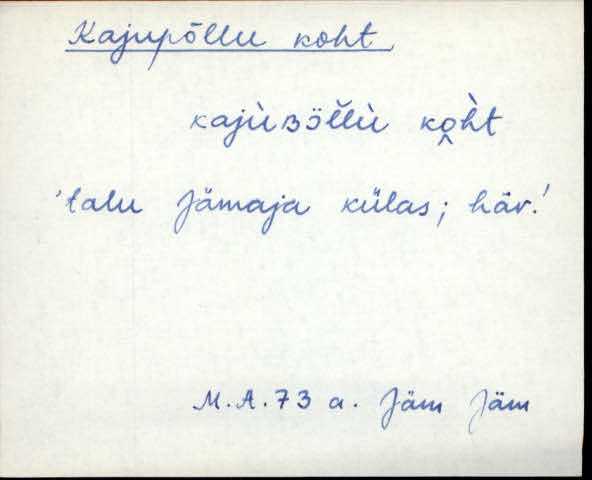 Kajupõllu koht
kajùʙɔ̈l̆lù ko̭h̀t
'talu Jämaja külas; häv.'
M.A. 73 a. Jäm Jäm